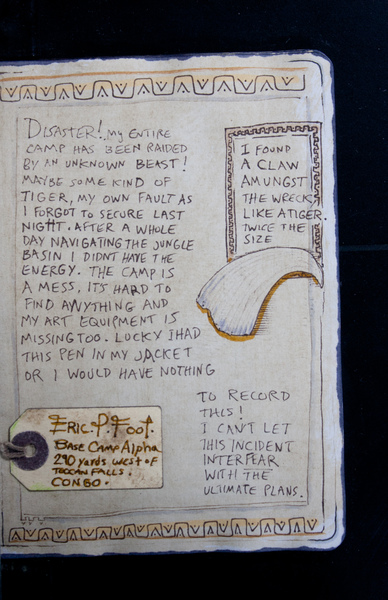 DISASTER! MY ENTIRE
CAMP HAS BEEN RAIDED
BY AN UNKNOWN BEAST!
MAYBE SOME KIND OF
TIGER, MY OWN FAULT AS
I FORGOT TO SECURE LAST
NIGHT. AFTER A WHOLE
DAY NAVIGATING THE JUNGLE
BASIN I DIDNT HAVE THE
ENERGY. THE CAMP IS
A MESS, IT'S HARD TO
FIND ANYTHING AND
MY ART EQUIPMENT IS
MISSING TOO. LUCKY I HAD
THIS PEN IN MY JACKET
OR I WOULD HAVE NOTHING
TO RECORD
THIS!
I CAN'T LET
THIS INCIDENT
INTERFEAR
WITH THE
ULTIMATE PLANS.
I FOUND
A CLAW
AMUNGST
THE WRECK,
LIKE A TIGER.
TWICE THE
SIZE
ERIC. P. FOOT.
BASE CAMP Alpha
290 yards west of
TOCCAN FALLS.
CONGO.